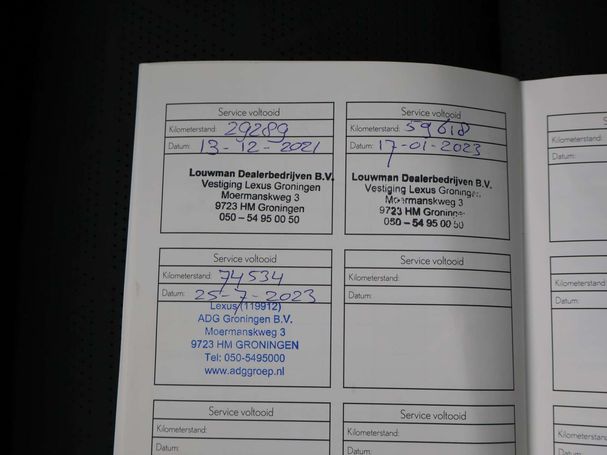 Service voltooid
Kilometerstand: 29289
Datum: 13-12-2021
Louwman Dealerbedrijven B.V.
Vestiging Lexus Groningen
Moermanskweg 3
9723 HM Groningen
050 – 54 95 00 50
Service voltooid
Kilometerstand: 59618
Datum: 17-01-2023
Louwman Dealerbedrijven B.V.
Vestiging Lexus Groningen
Moermanskweg 3
9723 HM Groningen
050 – 54 95 00 50
Service voltooid
Kilometerstand: 74534
Datum: 25-7-2023
Lexus (119912)
ADG Groningen B.V.
Moermanskweg 3
9723 HM GRONINGEN
Tel: 050-5495000
www.adggroep.nl
Service voltooid
Kilometerstand:
Datum:
Service voltooid
Kilometerstand:
Datum:
Service voltooid
Kilometerstand:
Datum:
Kilometerstand:
Datum:
Kilometerstand:
Datum:
Kilometerstan
Datum: